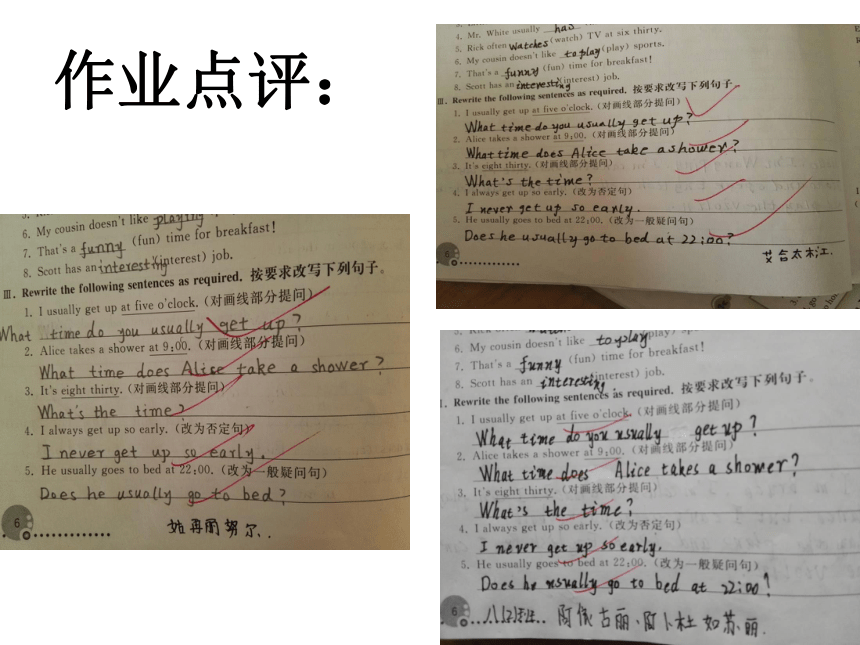 作业点评：
4. Mr. White usually has
5. Rick often watches (watch) TV at six thirty.
6. My cousin doesn't like to play (play) sports.
7. That's a funny (fun) time for breakfast!
8. Scott has an interesting (interest) job.
Ⅲ. Rewrite the following sentences as required. 按要求改写下列句子
1. I usually get up at five o'clock. (对画线部分提问)
What time do you usually get up?
2. Alice takes a shower at 9:00. (对画线部分提问)
What time does Alice take a shower?
3. It's eight thirty. (对画线部分提问)
What's the time?
4. I always get up so early. (改为否定句)
I never get up so early.
5. He usually goes to bed at 22:00. (改为一般疑问句)
Does he usually go to bed at 22:00?
6
艾合太木江.
6. My cousin doesn't like playing
7. That's a funny (fun) time for breakfast!
8. Scott has an interesting (interest) job.
Ⅲ. Rewrite the following sentences as required. 按要求改写下列句子。
1. I usually get up at five o'clock. (对画线部分提问)
What time do you usually get up?
2. Alice takes a shower at 9:00. (对画线部分提问)
What time does Alice take a shower?
3. It's eight thirty. (对画线部分提问)
What's the time?
4. I always get up so early. (改为否定句)
I never get up so early.
5. He usually goes to bed at 22:00. (改为一般疑问句)
Does he usually go to bed?
6
努尔.
6. My cousin doesn't like to play (play)
7. That's a funny (fun) time for breakfast!
8. Scott has an interesting (interest) job.
. Rewrite the following sentences as required. 按要求改写下列句子。
1. I usually get up at five o'clock. (对画线部分提问)
What time do you usually get up?
2. Alice takes a shower at 9:00. (对画线部分提问)
What time does Alice takes a shower?
3. It's eight thirty. (对画线部分提问)
What's the time?
4. I always get up so early. (改为否定句)
I never get up so early.
5. He usually goes to bed at 22:00. (改为一般疑问句)
Does he usually go to bed at 22:00?
6
古丽、阿卜杜如苏丽.